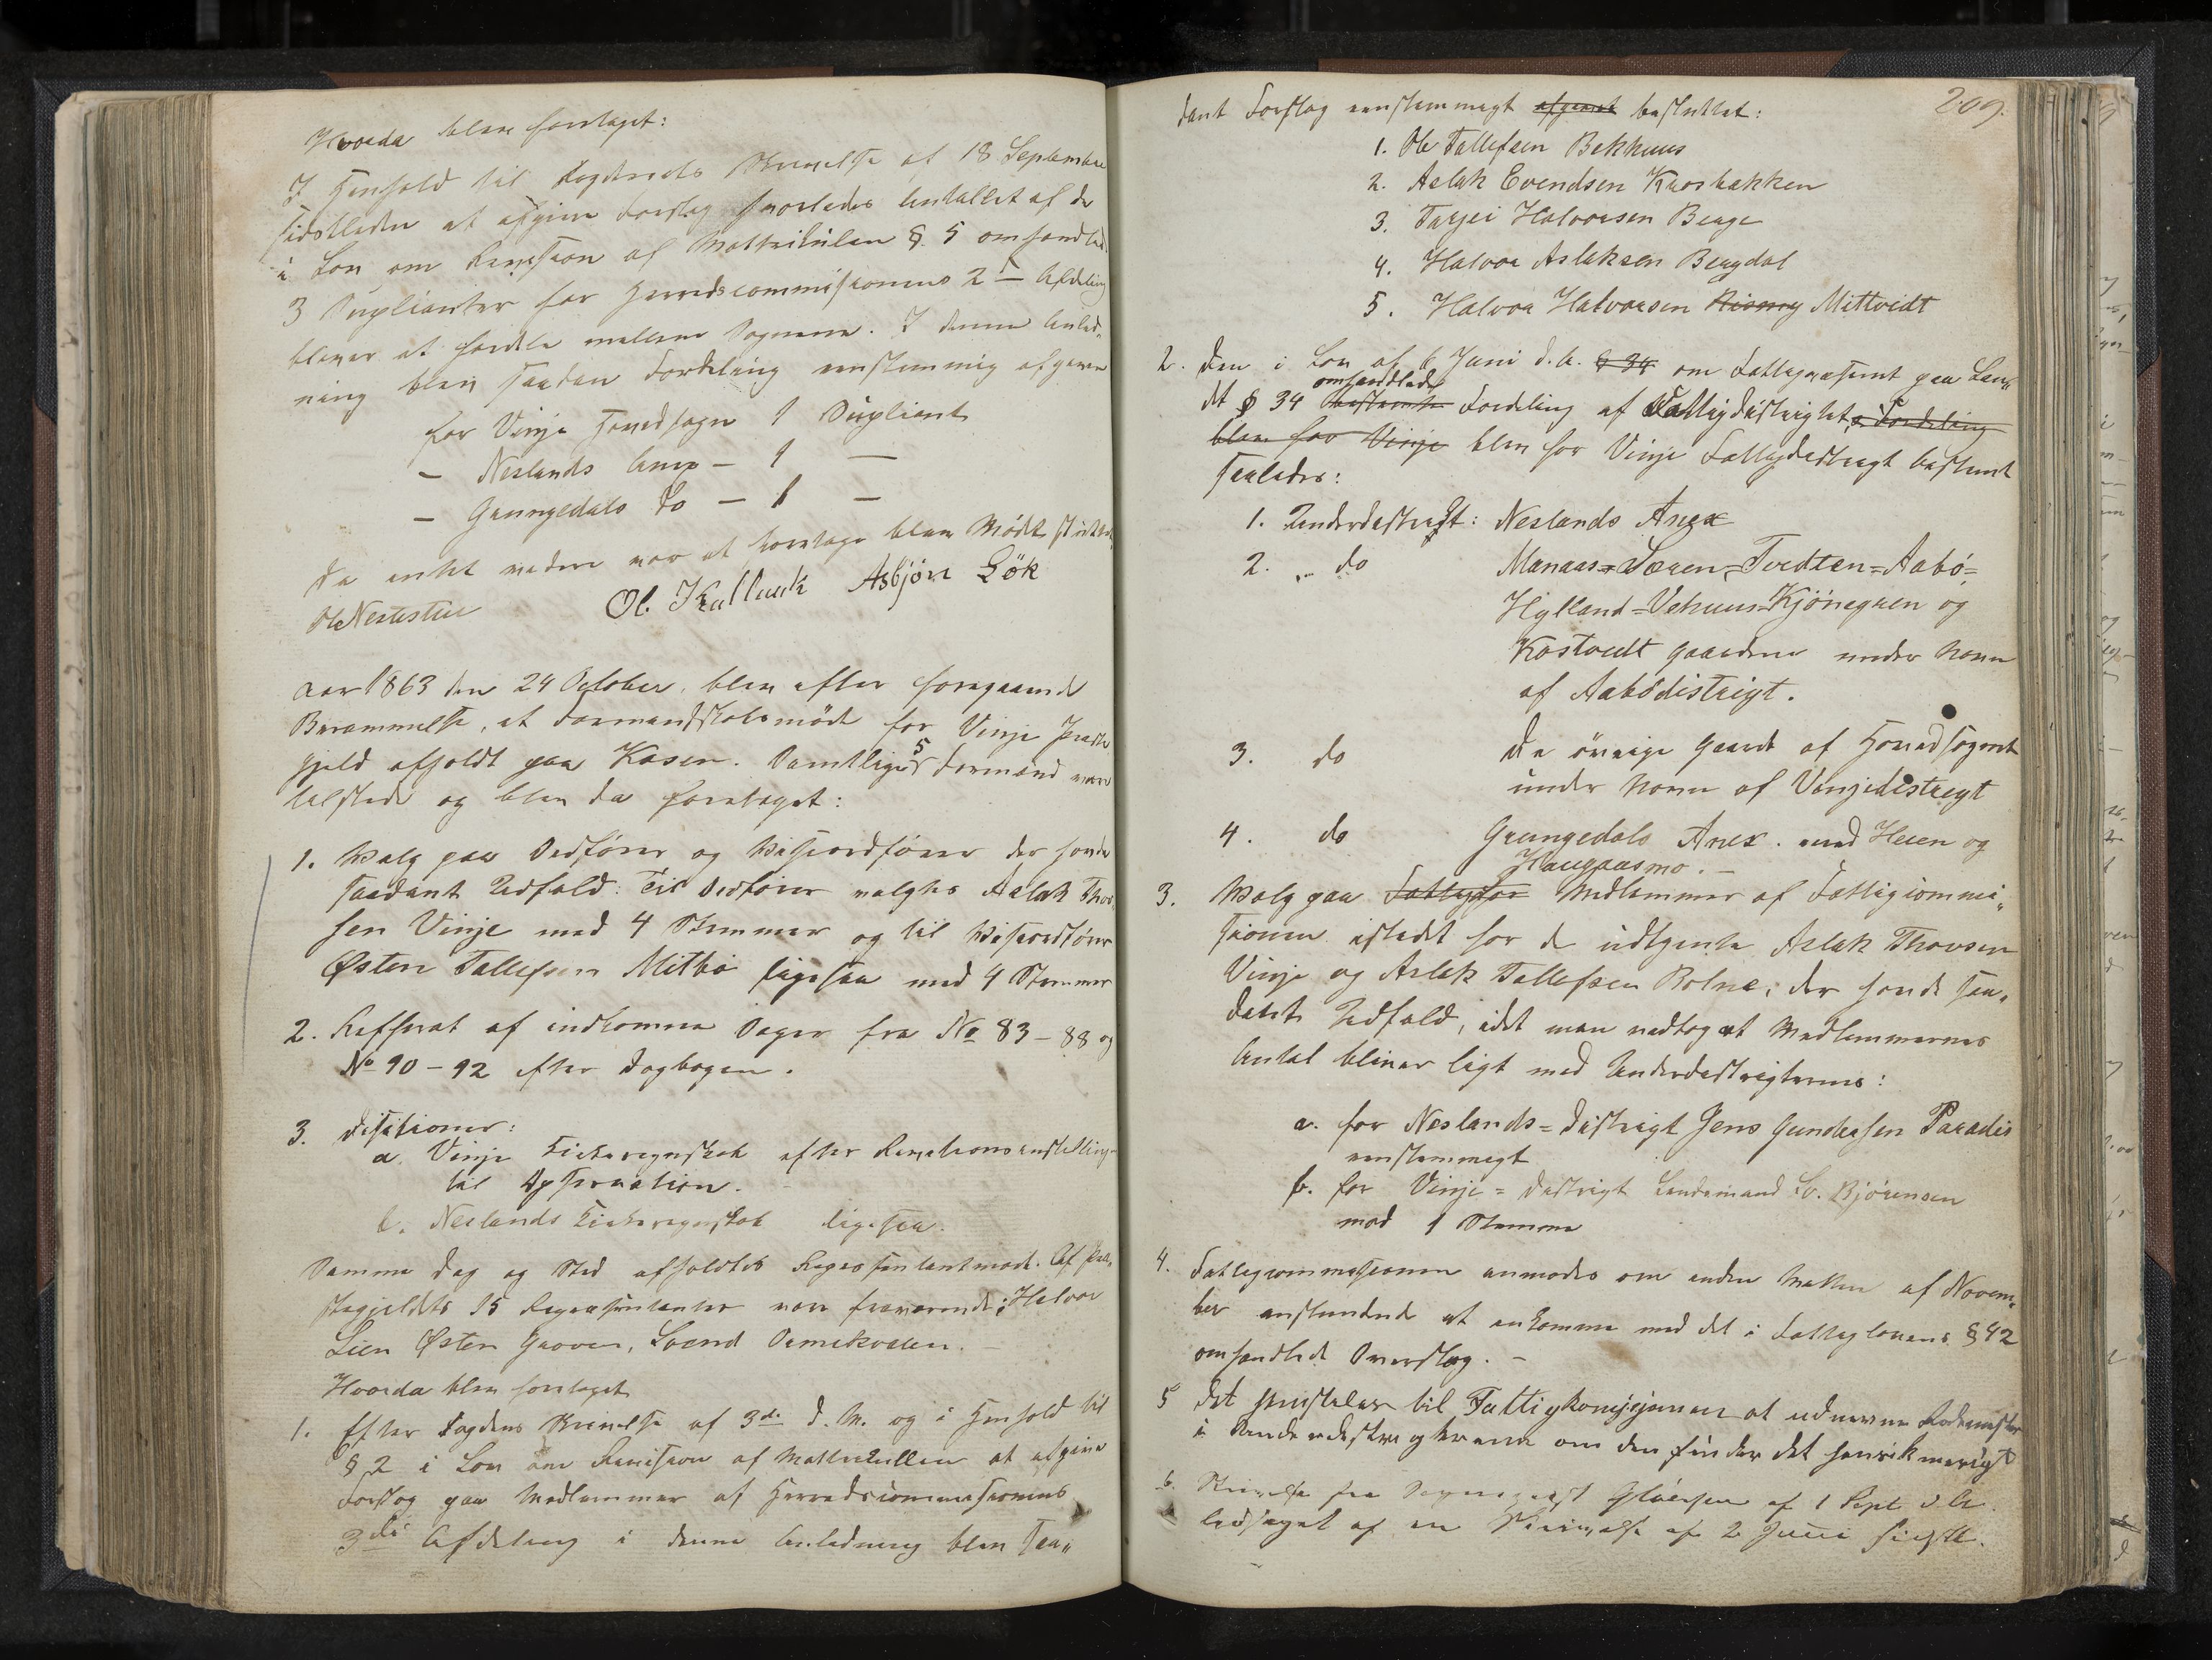 Hvorda blev foretaget:
I Henhold til Fogderiets Skrivelse af 18 September
sidstleden at afgive Forslag hvorledes Antallet af de
i Lov om Revision af Matrikulen § 5 omhandlede
3 Suplianter for Herredscommissionens 2den Afdeling
bliver at fordele mellem Sognene. I denne Anled-
ning blev saadan Fordeling eenstemmig afgiven
for Vinje Hovedsogn 1 Supliant
— Neslands Anex — 1 —
— Grungedals Do — 1 —
Da intet videre var at foretage blev Mødet sluttet.
Ole Nestestue Ol. Kallaak Asbjön Lök
Aar 1863 den 24 October, blev efter foregaaende
Berammelse, et Formandskabsmöde for Vinje Præste
gjeld afholdt paa Kosen. Samtlige 5 Formænd vare
tilstede og blev da foretaget:
1. Valg paa Ordfører og Viseordfører der havde
saadant Udfald: Til Ordfører valgtes Aslak Thov-
sen Vinje med 4 Stemmer og til Viseordfører
Østen Tallefsen Mitbø ligesaa med 4 Stemmer
2. Refferat af indkomne Sager fra No 83 - 88 og
No 90 - 92 efter Dagbogen.
3. Desitioner:
a. Vinje Kirkeregnskab efter Revisionsanstilling
til Apsrvation.
b. Neslands Kirkeregnskab ligesaa.
Samme Dag og Sted afholdtes Repræsentantmøde. Af Præ-
stegjeldets 15 Repræsentanter vare fraværende: Halvor
Lien Østen Groven, Svend
Hvorda blev foretaget
1. Efter Fogdens Skrivelse af 3de d. M. og i Henhold til
§ 2 i Lov om Revision af Matrikullen at afgive
Forslag paa Medlemmer af Herredscommissionens
3die Afdeling i denne Anledning blev saa-
209.
dant Forslag eenstemmigt afgivet besluttet:
1. Ole Tallefsen Bekhuus
2. Aslak Evendsen Krosbækken
3. Tarjei Halvorsen Berge
4. Halvor Aslaksen Bergdal
5. Halvor Halvorsen Mittveidt
2. Den i Lov af 6 Juni d. A. § 34 om Fattigvæsenet paa Lan-
omhandlede
det § 34 bestemte Fordeling af Fattigdistrigtet, s Fordeling
blev for Vinje blev for Vinje Fattigdistrigt bestemt
saaledes:
1. Underdistrigt: Neslands Anex
2. „ do Manaas = Særen = Tvedten = Aabö =
Hylland = Vehuus = Kjönegren og
Kostvedt gaardene under Navn
af Aabödistrigt.
3. do De øvrige Gaarde af Hovedsognet
under Navn af Vinjedistrigt
4. do Grungedals Anex. med Heien og
Haugaasmo. —
3. Valg paa Fattigfor Medlemmer af Fattigcommi-
sionen istedet for de udtgente Aslak Thovsen
Vinje og Aslak Tallefsen Bolna, der havde saa-
dant Udfald, idet man vedtog at Medlemmernes
Antal bliver ligt med Underdistrigternes:
a. for Neslands = Distrigt Jens Gundersen Paradis
eenstemmigt
b. for Vinje = Distrigt Lendsmand S. Bjørensen
mod 1 Stemme
4. Fattigcommisionen anmodes om inden Midten af Novem-
ber anstundende at indkomme med det i Fattiglovens § 42
omhandlede Overslag. —
5 Det henstilles til Fattigkomisjonen at udnævne Rodemester
i Underdistrigterne om den finder det hensikmesigt
6. Skrivelse fra Sogneprest Gløersen af 1 Sept d A.
ledsaget af en Skrivelse af 2 Juni sidstl.